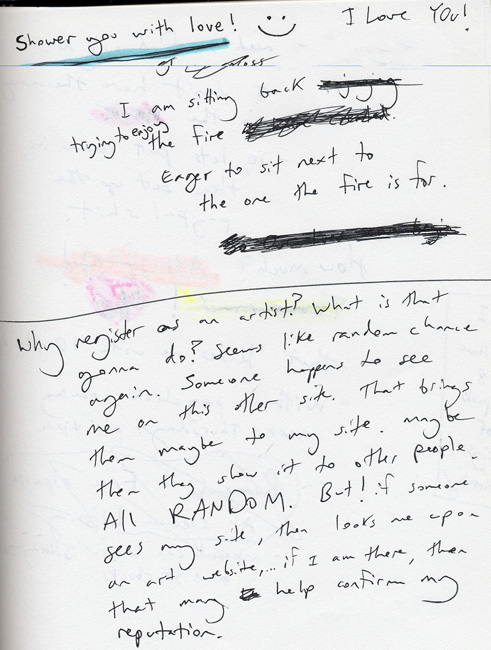 Shower you with love! I Love YOU!
I am sitting back
trying to enjoy the fire
Eager to sit next to
the one the fire is for.
Why register as an artist? What is that
gonna do? Seems like random chance
again. Someone happens to see
me on this other site. That brings
them maybe to my site. Maybe
then they show it to other people.
All RANDOM. But! if someone
sees my site, then looks me upon
an art website,... if I am there, then
that may help confirm my
reputation.